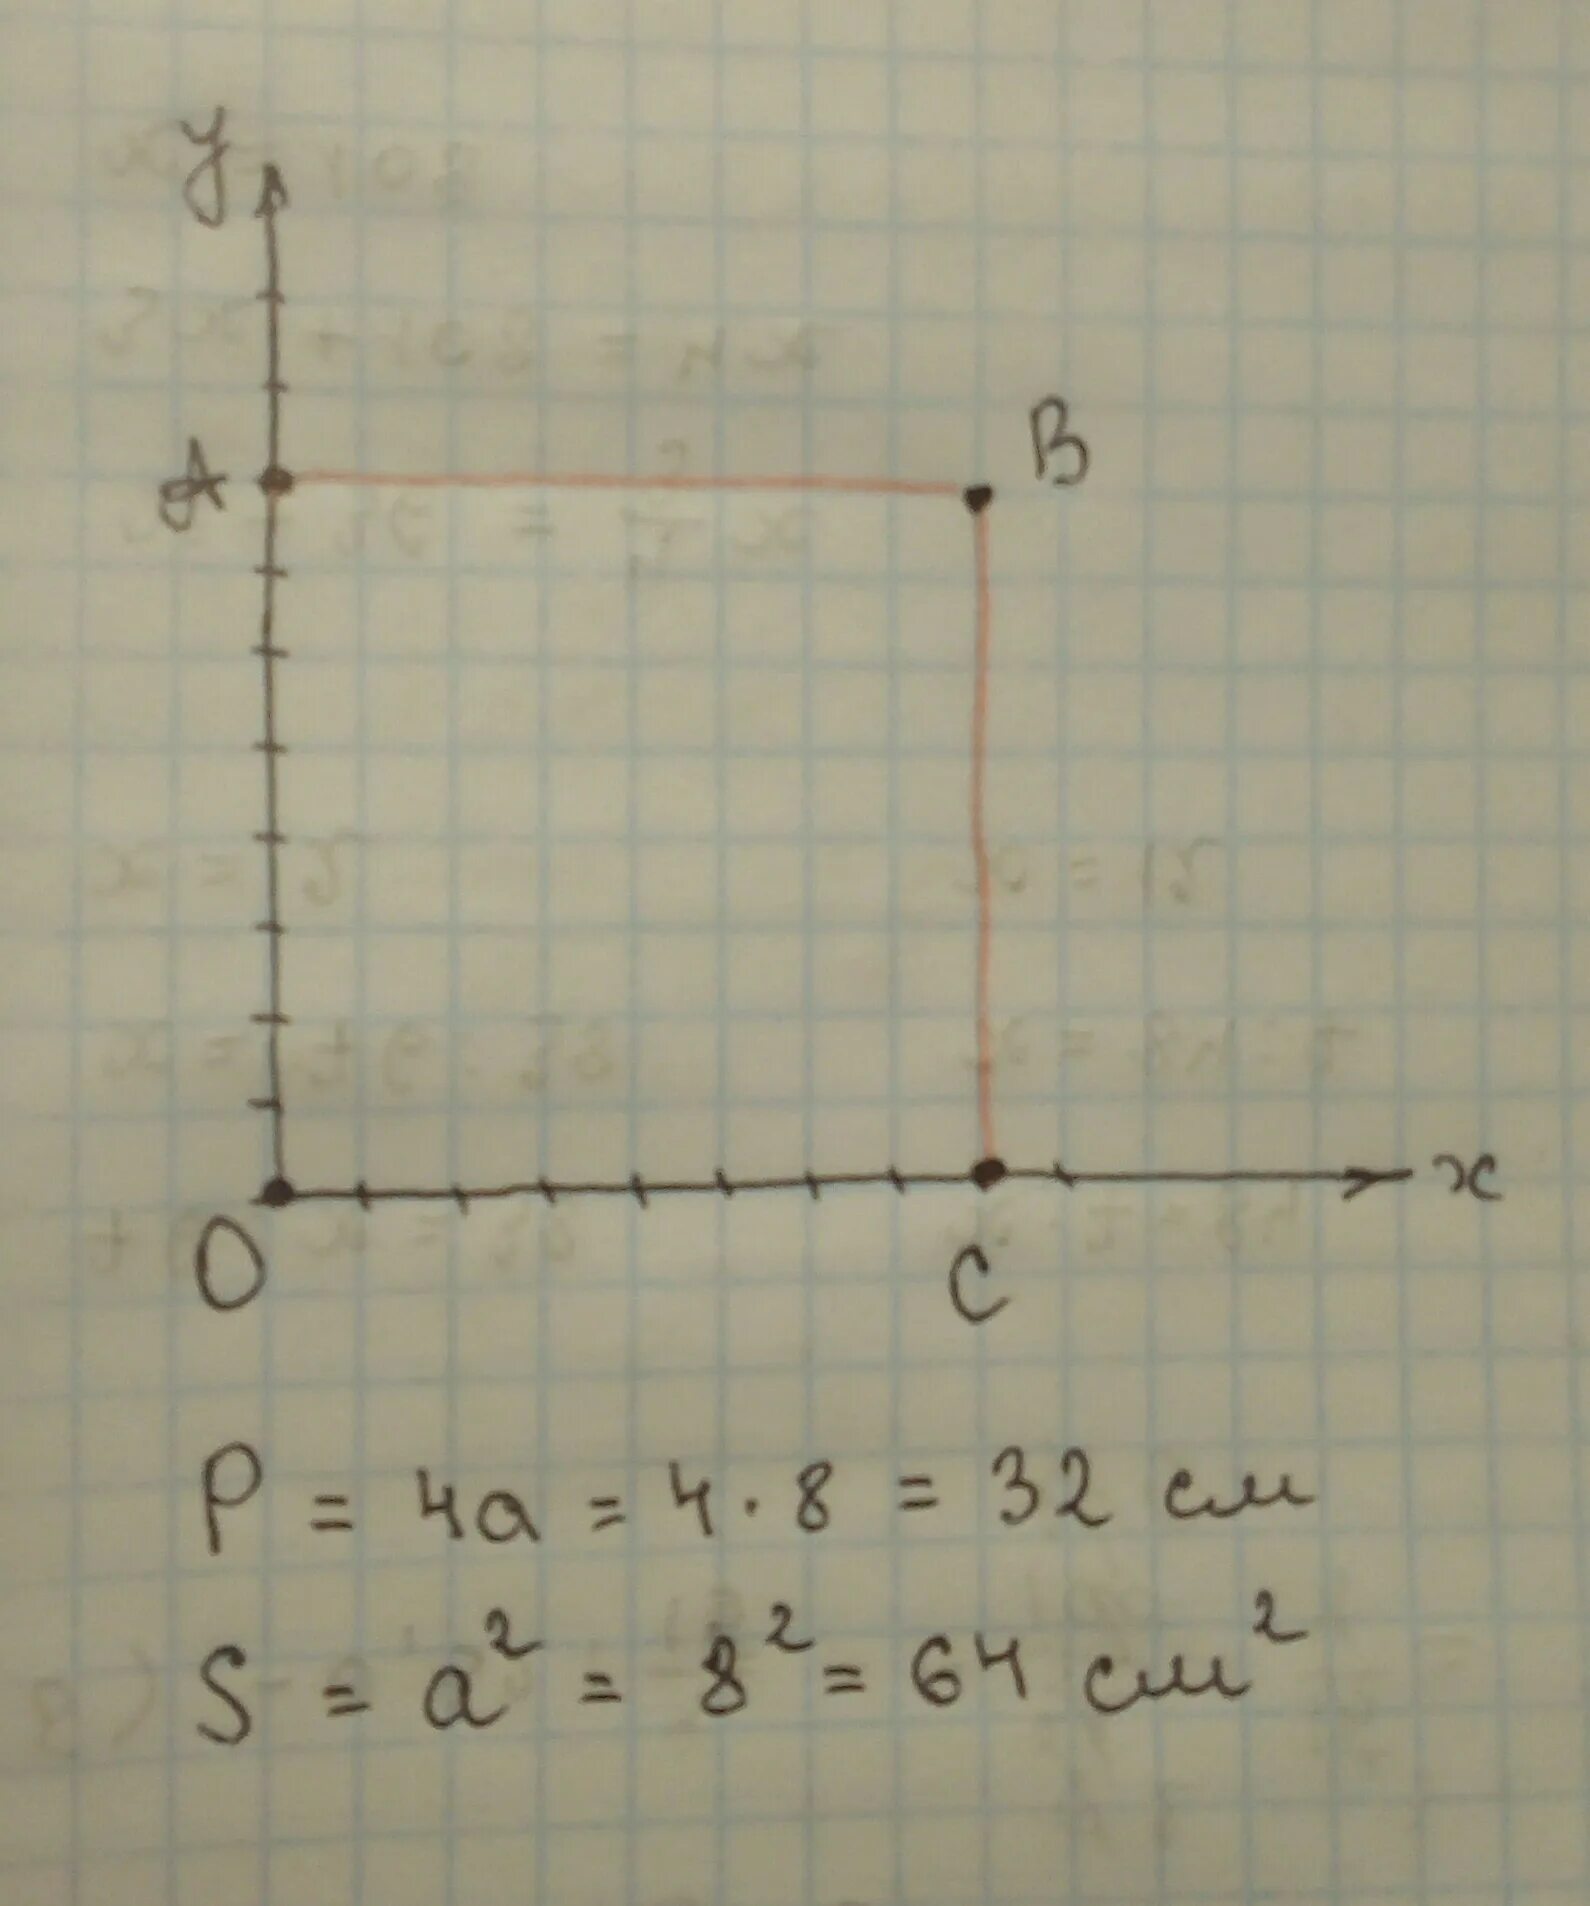 y
A
B
O
C
x
P = 4a = 4 · 8 = 32 см
S = a² = 8² = 64 см²